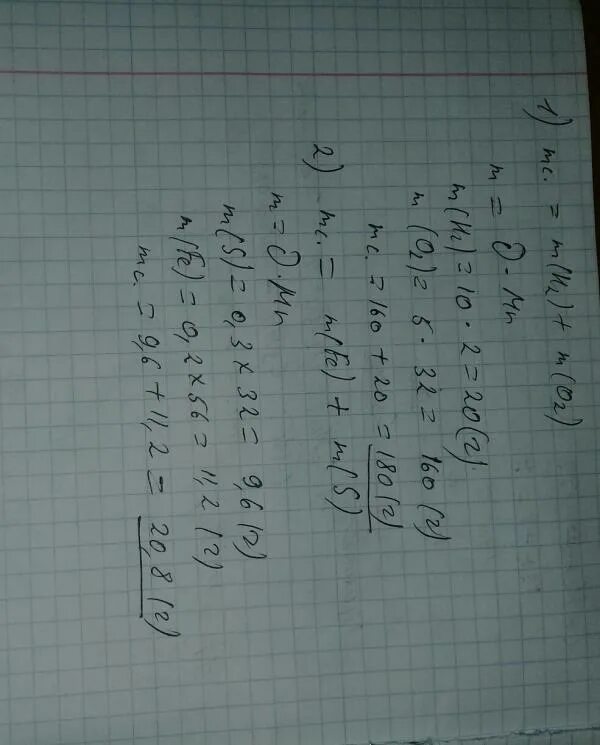 1) mс. = m(H₂) + m(O₂)
m = ϑ · Mn
m(H₂) = 10 · 2 = 20 (г)
m (O₂) = 5 · 32 = 160 (г)
mс. = 160 + 20 = 180 (г)
2) mс. = m(Fe) + m(S)
m = ϑ · Mn
m(S) = 0,3 × 32 = 9,6 (г)
m(Fe) = 0,2 × 56 = 11,2 (г)
mс. = 9,6 + 11,2 = 20,8 (г)